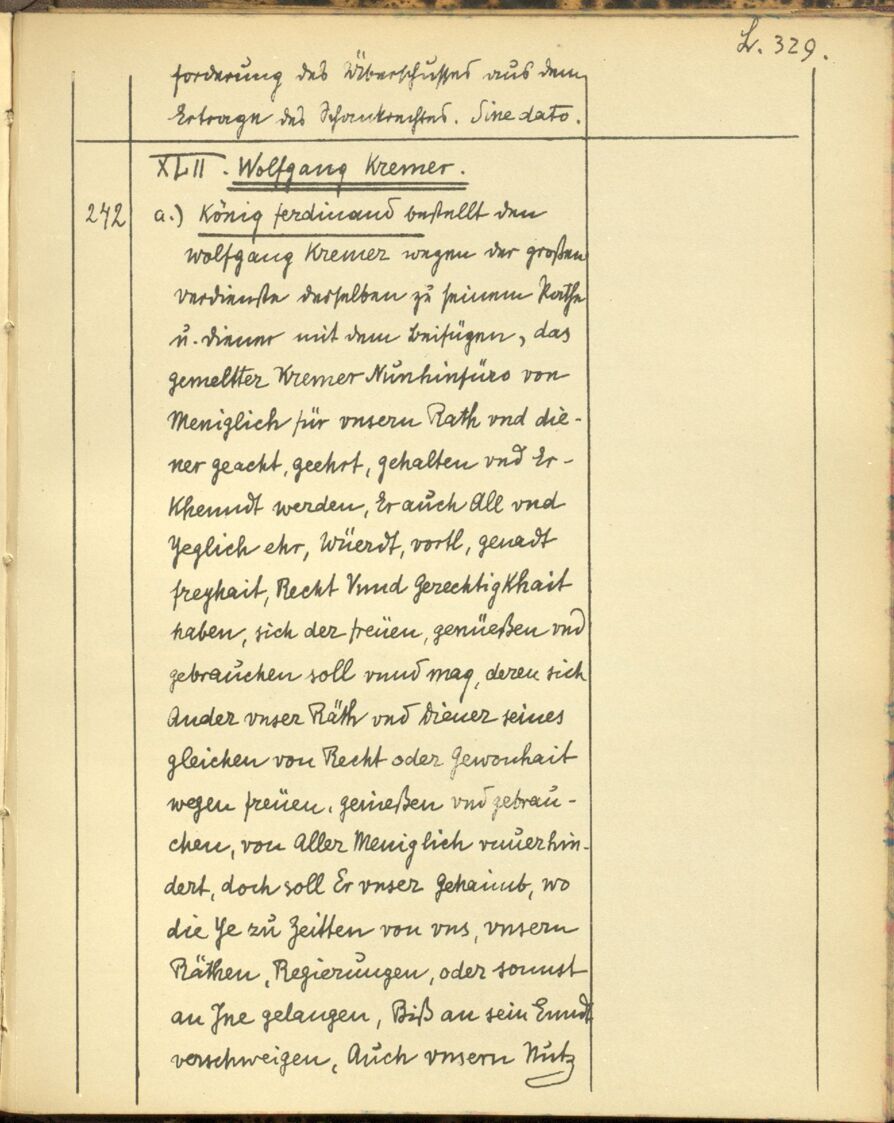 L. 329.
forderung des Überschusses aus dem
Ertrage des Schankrechtes. Sine dato.
XLII. Wolfgang Kremer.
242 a.) König Ferdinand bestellt den
Wolfgang Kremer wegen der großen
Verdienste desselben zu seinem Rathe
u. Diener mit dem Beifügen, das
gemeltter Kremer Nunhinfüro von
Meniglich für vnsern Rath vnd die-
ner geacht, geehrt, gehalten vnd Er-
Khenndt werden, Er auch All vnd
Yeglich ehr, Wüerdt, vortl, genadt
freyhait, Recht Vnnd GerechtigKhait
haben, sich der freüen, genüeßen vnd
gebrauchen soll vnnd mag, deren sich
Ander vnser Räth vnd Diener seines
gleichen von Recht oder Gewonhait
wegen freüen, genießen vnd gebrau-
chen, von Aller Meniglich vnuerhin-
dert, doch soll Er vnser Gehaimb, wo
die Ye zu Zeitten von vns, vnsern
Räthen, Regierungen, oder sonnst
an Jne gelangen, Biß an sein Enndt
verschweigen, Auch vnsern Nutz